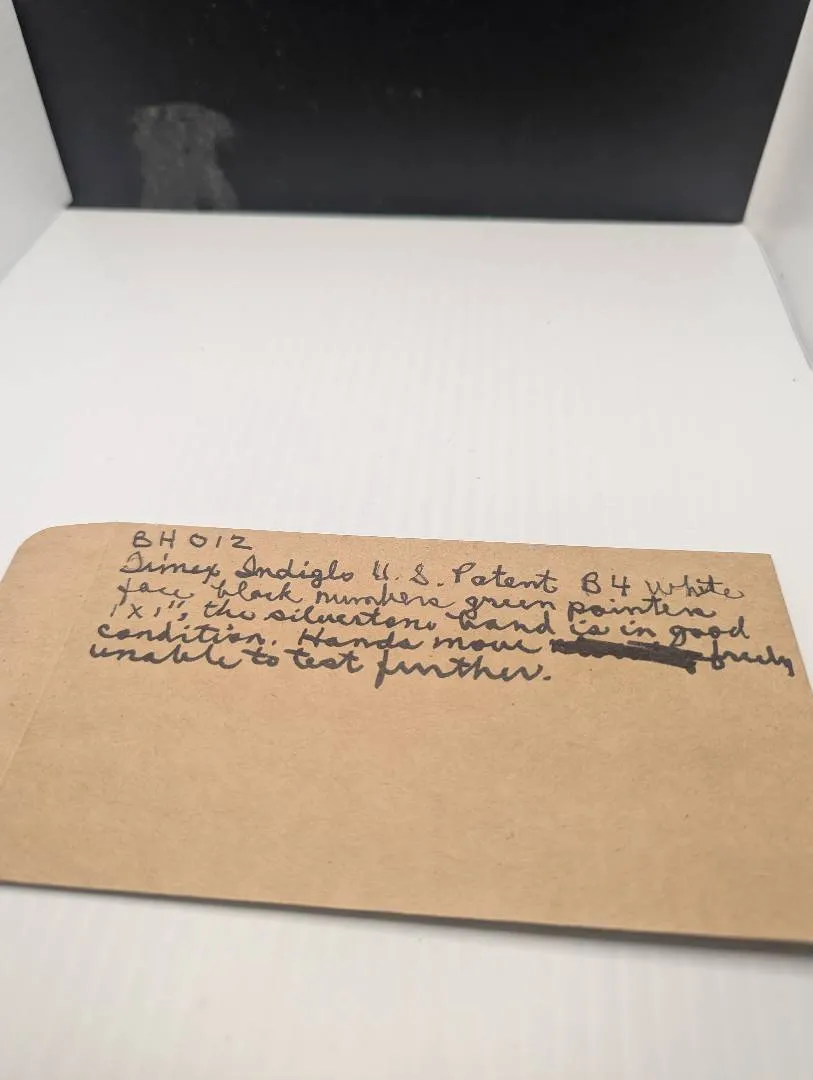 BH 012
Timex Indiglo U.S. Patent B4 white
face black numbers green pointers
1"x1", the silvertone band is in good
condition. Hands move freely
unable to test further.